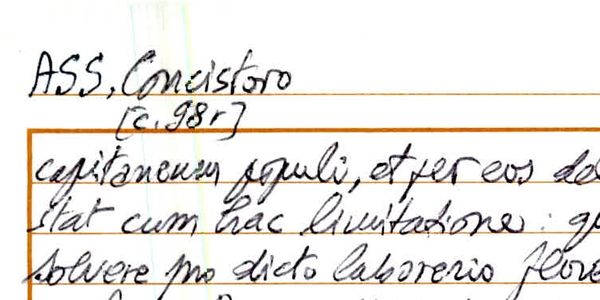 ASS, Concistoro
[c. 98r]
capitaneum populi, et per eos
stat cum hac limitatione:
solvere pro dicto laborerio